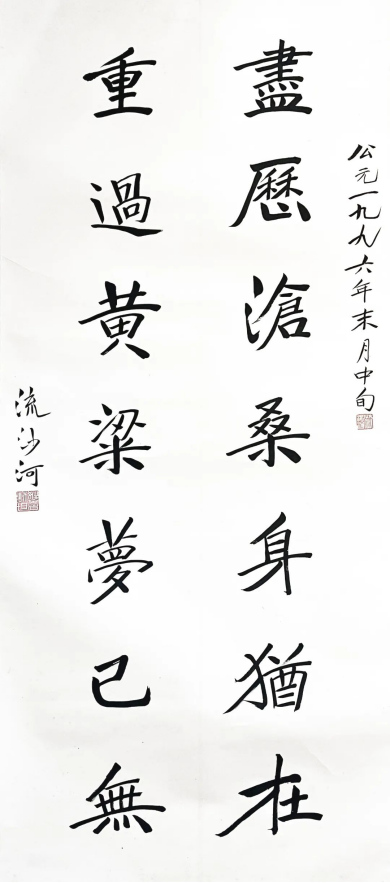 公元一九九六年末月中旬
盡歷滄桑身猶在
重過黄粱夢已無
流沙河